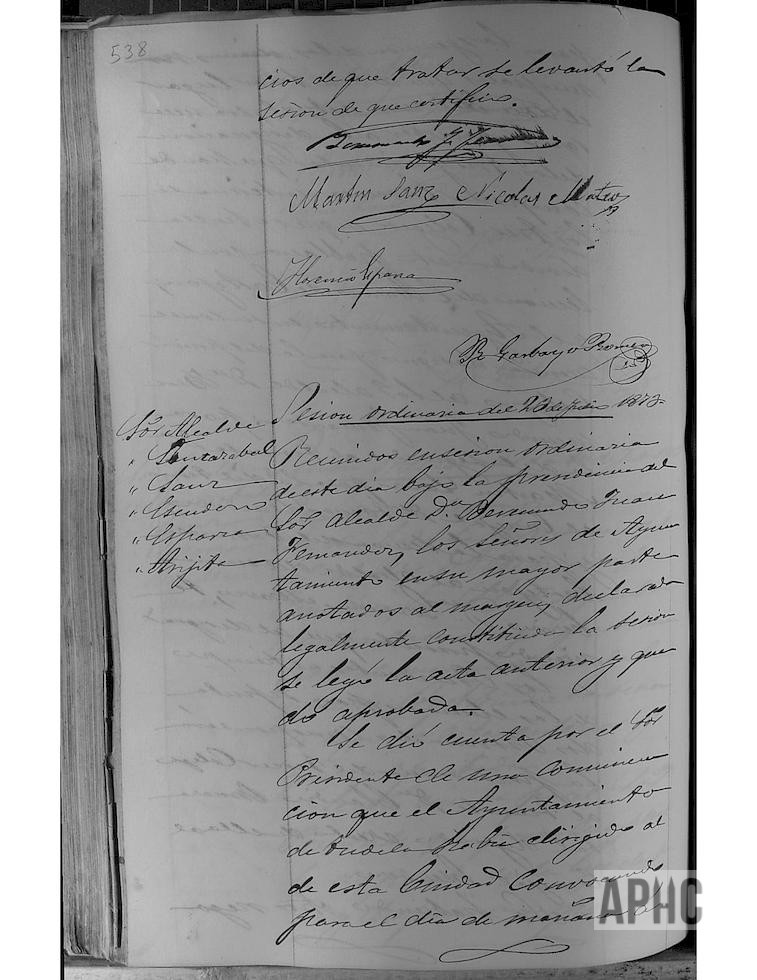 538
cios de que tratar se levantó la
sesion de que certifico.
Martin Sanz Nicolas Mateo
Florencio España
Sesion ordinaria del 1873.
Sor Alcalde
" Sanz
" Escudero
" Esparza
" Arijita
Reunidos en sesion ordinaria
de este dia bajo la presidencia del
Sor Alcalde Dn Bermundo Juan
Fernandez, los señores de Ayun
tamiento en su mayor parte
anotados al margen, declarada
legalmente constituida la sesion
se leyó la acta anterior y que
dó aprobada.
Se dió cuenta por el Sor
Presidente de una comunica
cion que el Ayuntamiento
de Tudela habia dirigido al
de esta Ciudad convocando
para el dia de mañana
APHC